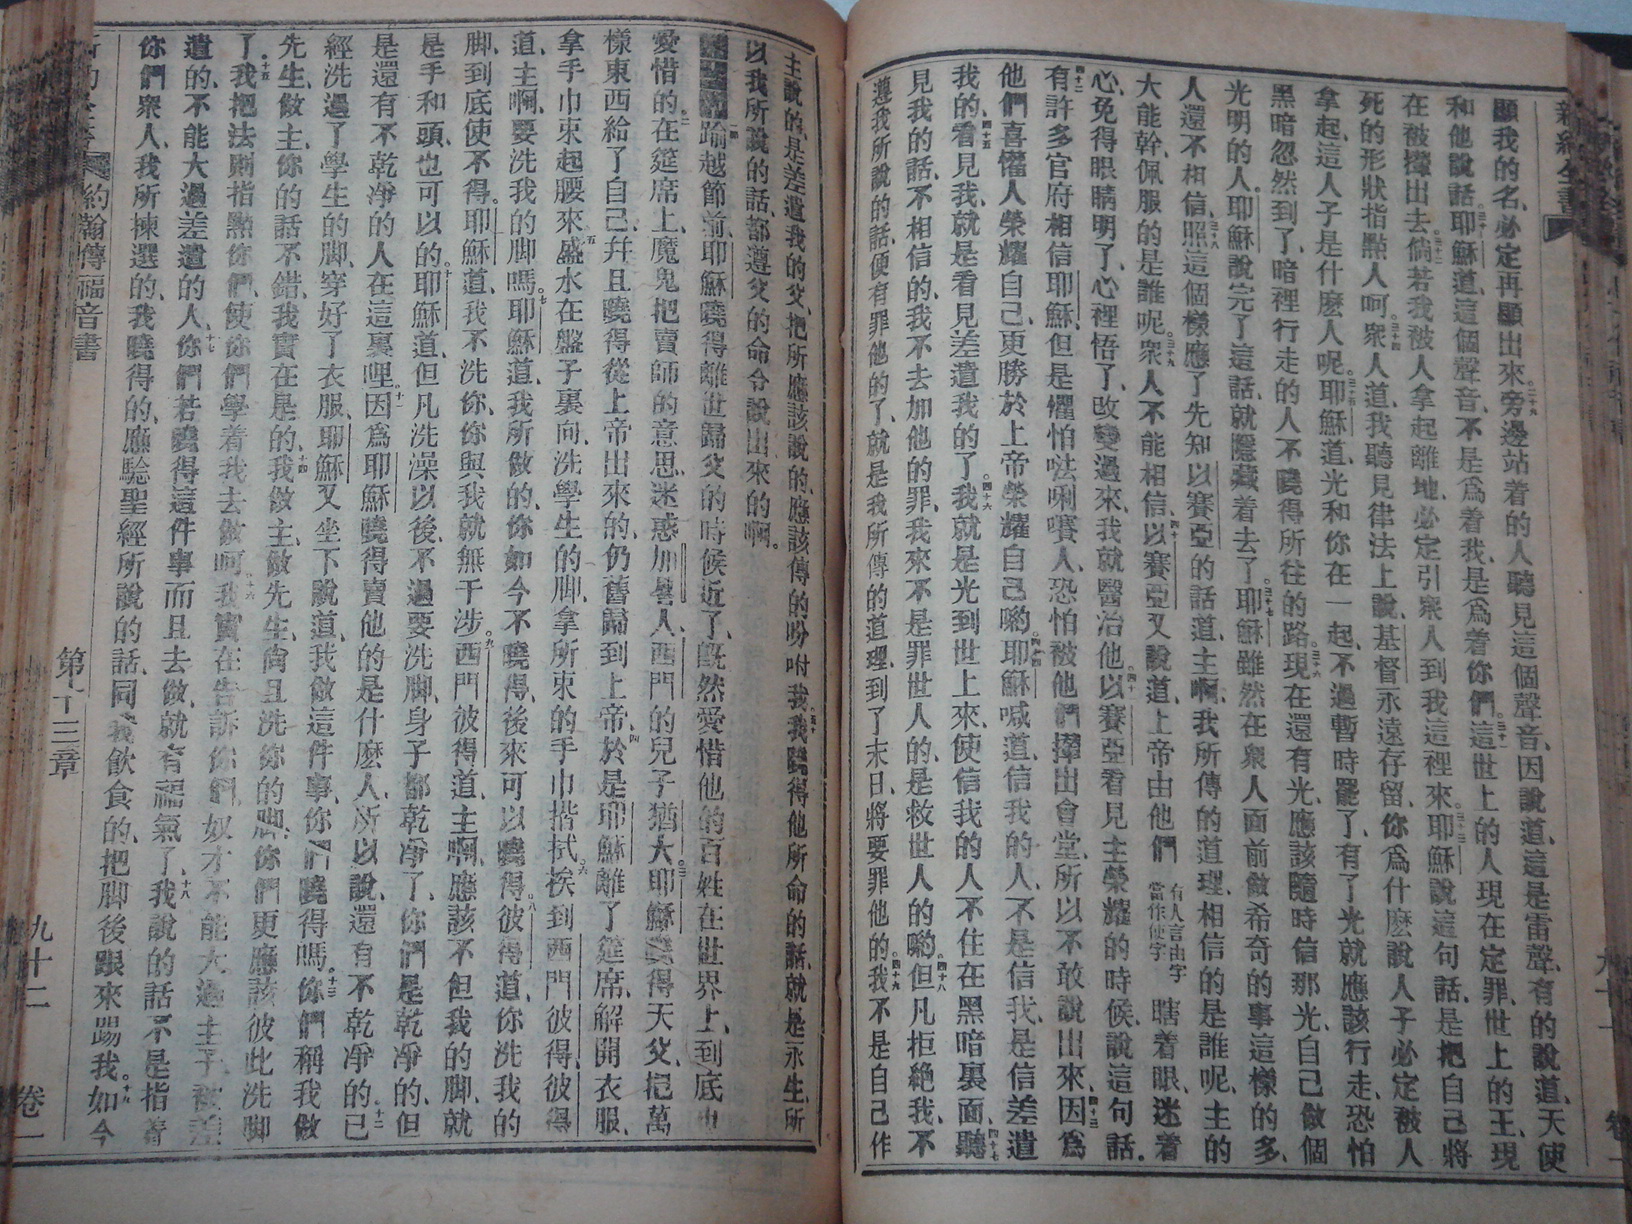 顯我的名、必定再顯出來。二十九旁邊站着的人聽見這個聲音、因說道、這是雷聲、有的說道、天使
和他說話。三十耶穌道、這個聲音、不是爲着我、是爲着你們。三十一這世上的人現在定罪、世上的王、現
在被攆出去。三十二倘若我被人拿起離地、必定引衆人到我這裡來。三十三耶穌說這句話、是把自己將
死的形狀指點人呵。三十四衆人道、我聽見律法上說、基督永遠存留、你爲什麽說人子必定被人
拿起、這人子是什麽人呢。三十五耶穌道、光和你在一起、不過暫時罷了、有了光就應該行走、恐怕
黑暗忽然到了、暗裡行走的人、不曉得所往的路。三十六現在還有光、應該隨時信那光、自己做個
光明的人、耶穌說完了這話、就隱藏着去了。三十七耶穌雖然在衆人面前做希奇的事這樣的多、
人還不相信。三十八照這個樣應了先知以賽亞的話道、主啊、我所傳的道理、相信的是誰呢、主的
大能幹、佩服的是誰呢。三十九衆人不能相信、四十以賽亞又說道、上帝由他們 有人言由字當作使字 瞎着眼、迷着
心、免得眼睛明了、心裡悟了、改變過來、我就醫治他。四十一以賽亞看見主榮耀的時候、說這句話。
四十二有許多官府相信耶穌、但是懼怕𠵽唎賽人、恐怕被他們攆出會堂、所以不敢說出來、四十三因爲
他們喜懽人榮耀自己、更勝於上帝榮耀自己喲。四十四耶穌喊道、信我的人、不是信我、是信差遣
我的、四十五看見我、就是看見差遣我的了。四十六我就是光、到世上來、使信我的人不住在黑暗裏面、四十七聽
見我的話、不相信的、我不去加他的罪、我來不是罪世人的、是救世人的喲。四十八但凡拒絕我、不
遵我所說的話、便有罪他的了、就是我所傳的道理、到了末日、將要罪他的。四十九我不是自己作
主說的、是差遣我的父、把所應該說的、應該傳的吩咐我、五十我曉得他所命的話、就是永生、所
以我所說的話、都遵父的命令說出來的啊。
一踰越節前、耶穌曉得離世歸父的時候近了、旣然愛惜他的百姓在世界上、到底也
愛惜的。二在筵席上、魔鬼把賣師的意思、迷惑加畧人、西門的兒子猶大。三耶穌曉得天父、把萬
樣東西給了自己、幷且曉得從上帝出來的、仍舊歸到上帝。四於是耶穌離了筵席、解開衣服、
拿手巾束起腰來、五盛水在盤子裏向、洗學生的脚、拿所束的手巾揩拭。六挨到西門彼得、彼得
道、主啊、要洗我的脚嗎。七耶穌道、我所做的、你如今不曉得、後來可以曉得。八彼得道、你洗我的
脚、到底使不得、耶穌道、我不洗你、你與我就無干涉。九西門彼得道、主啊、應該不但我的脚、就
是手和頭、也可以的。十耶穌道、但凡洗澡以後、不過要洗脚、身子都乾凈了、你們是乾凈的、但
是還有不乾凈的人在這裏哩。十一因爲耶穌曉得賣他的是什麽人、所以說、還有不乾凈的、十二已
經洗過了學生的脚、穿好了衣服、耶穌又坐下說道、我做這件事、你們曉得嗎。十三你們稱我做
先生、做主、你的話不錯、我實在是的、十四我做主、做先生、尙且洗你的脚、你們更應該彼此洗脚
了。十五我把法則指點你們、使你們學着我去做呵。十六我實在告訴你們、奴才不能大過主子、被差
遣的、不能大過差遣的人、十七你們若曉得這件事、而且去做、就有福氣了、十八我說的話、不是指着
你們衆人、我所揀選的、我曉得的、應騐聖經所說的話、同我飲食的、把脚後跟來踢我。十九如今
約翰傳福音書 第十三章 九十二 卷一